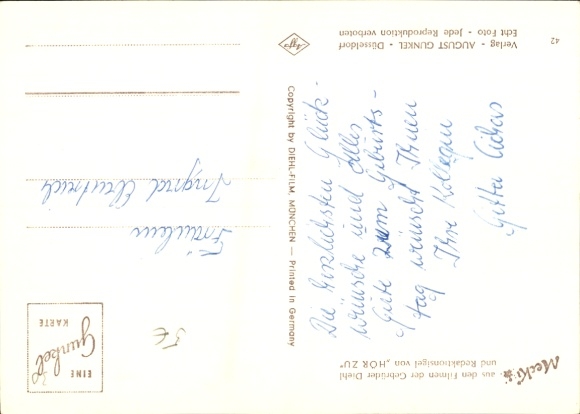 Mecki
aus den Filmen der Gebrüder Diehl
und Redaktionsigel von „HÖR ZU"
Die herzlichsten Glück-
wünsche und alles
Gute zum Geburts-
tag wünscht Ihnen
Ihre Kollegin
Gitta
42
Verlag - AUGUST GUNKEL - Düsseldorf
Echt Foto - Jede Reproduktion verboten
Agfa
Copyright by DIEHL-FILM, MÜNCHEN — Printed in Germany
EINE
Gunkel
KARTE
30
5€
Fräulein
Ingrid